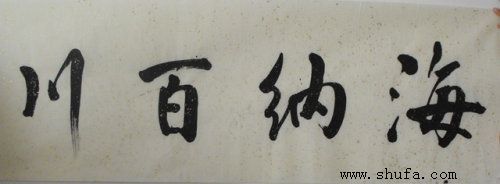 海纳百川
www.shufa.com